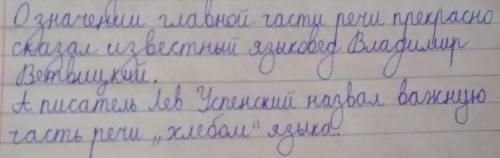 О значении главной части речи прекрасно
сказал известный языковед Владимир
Ветвицкий.
А писатель Лев Успенский назвал важную
часть речи „хлебом" языка.